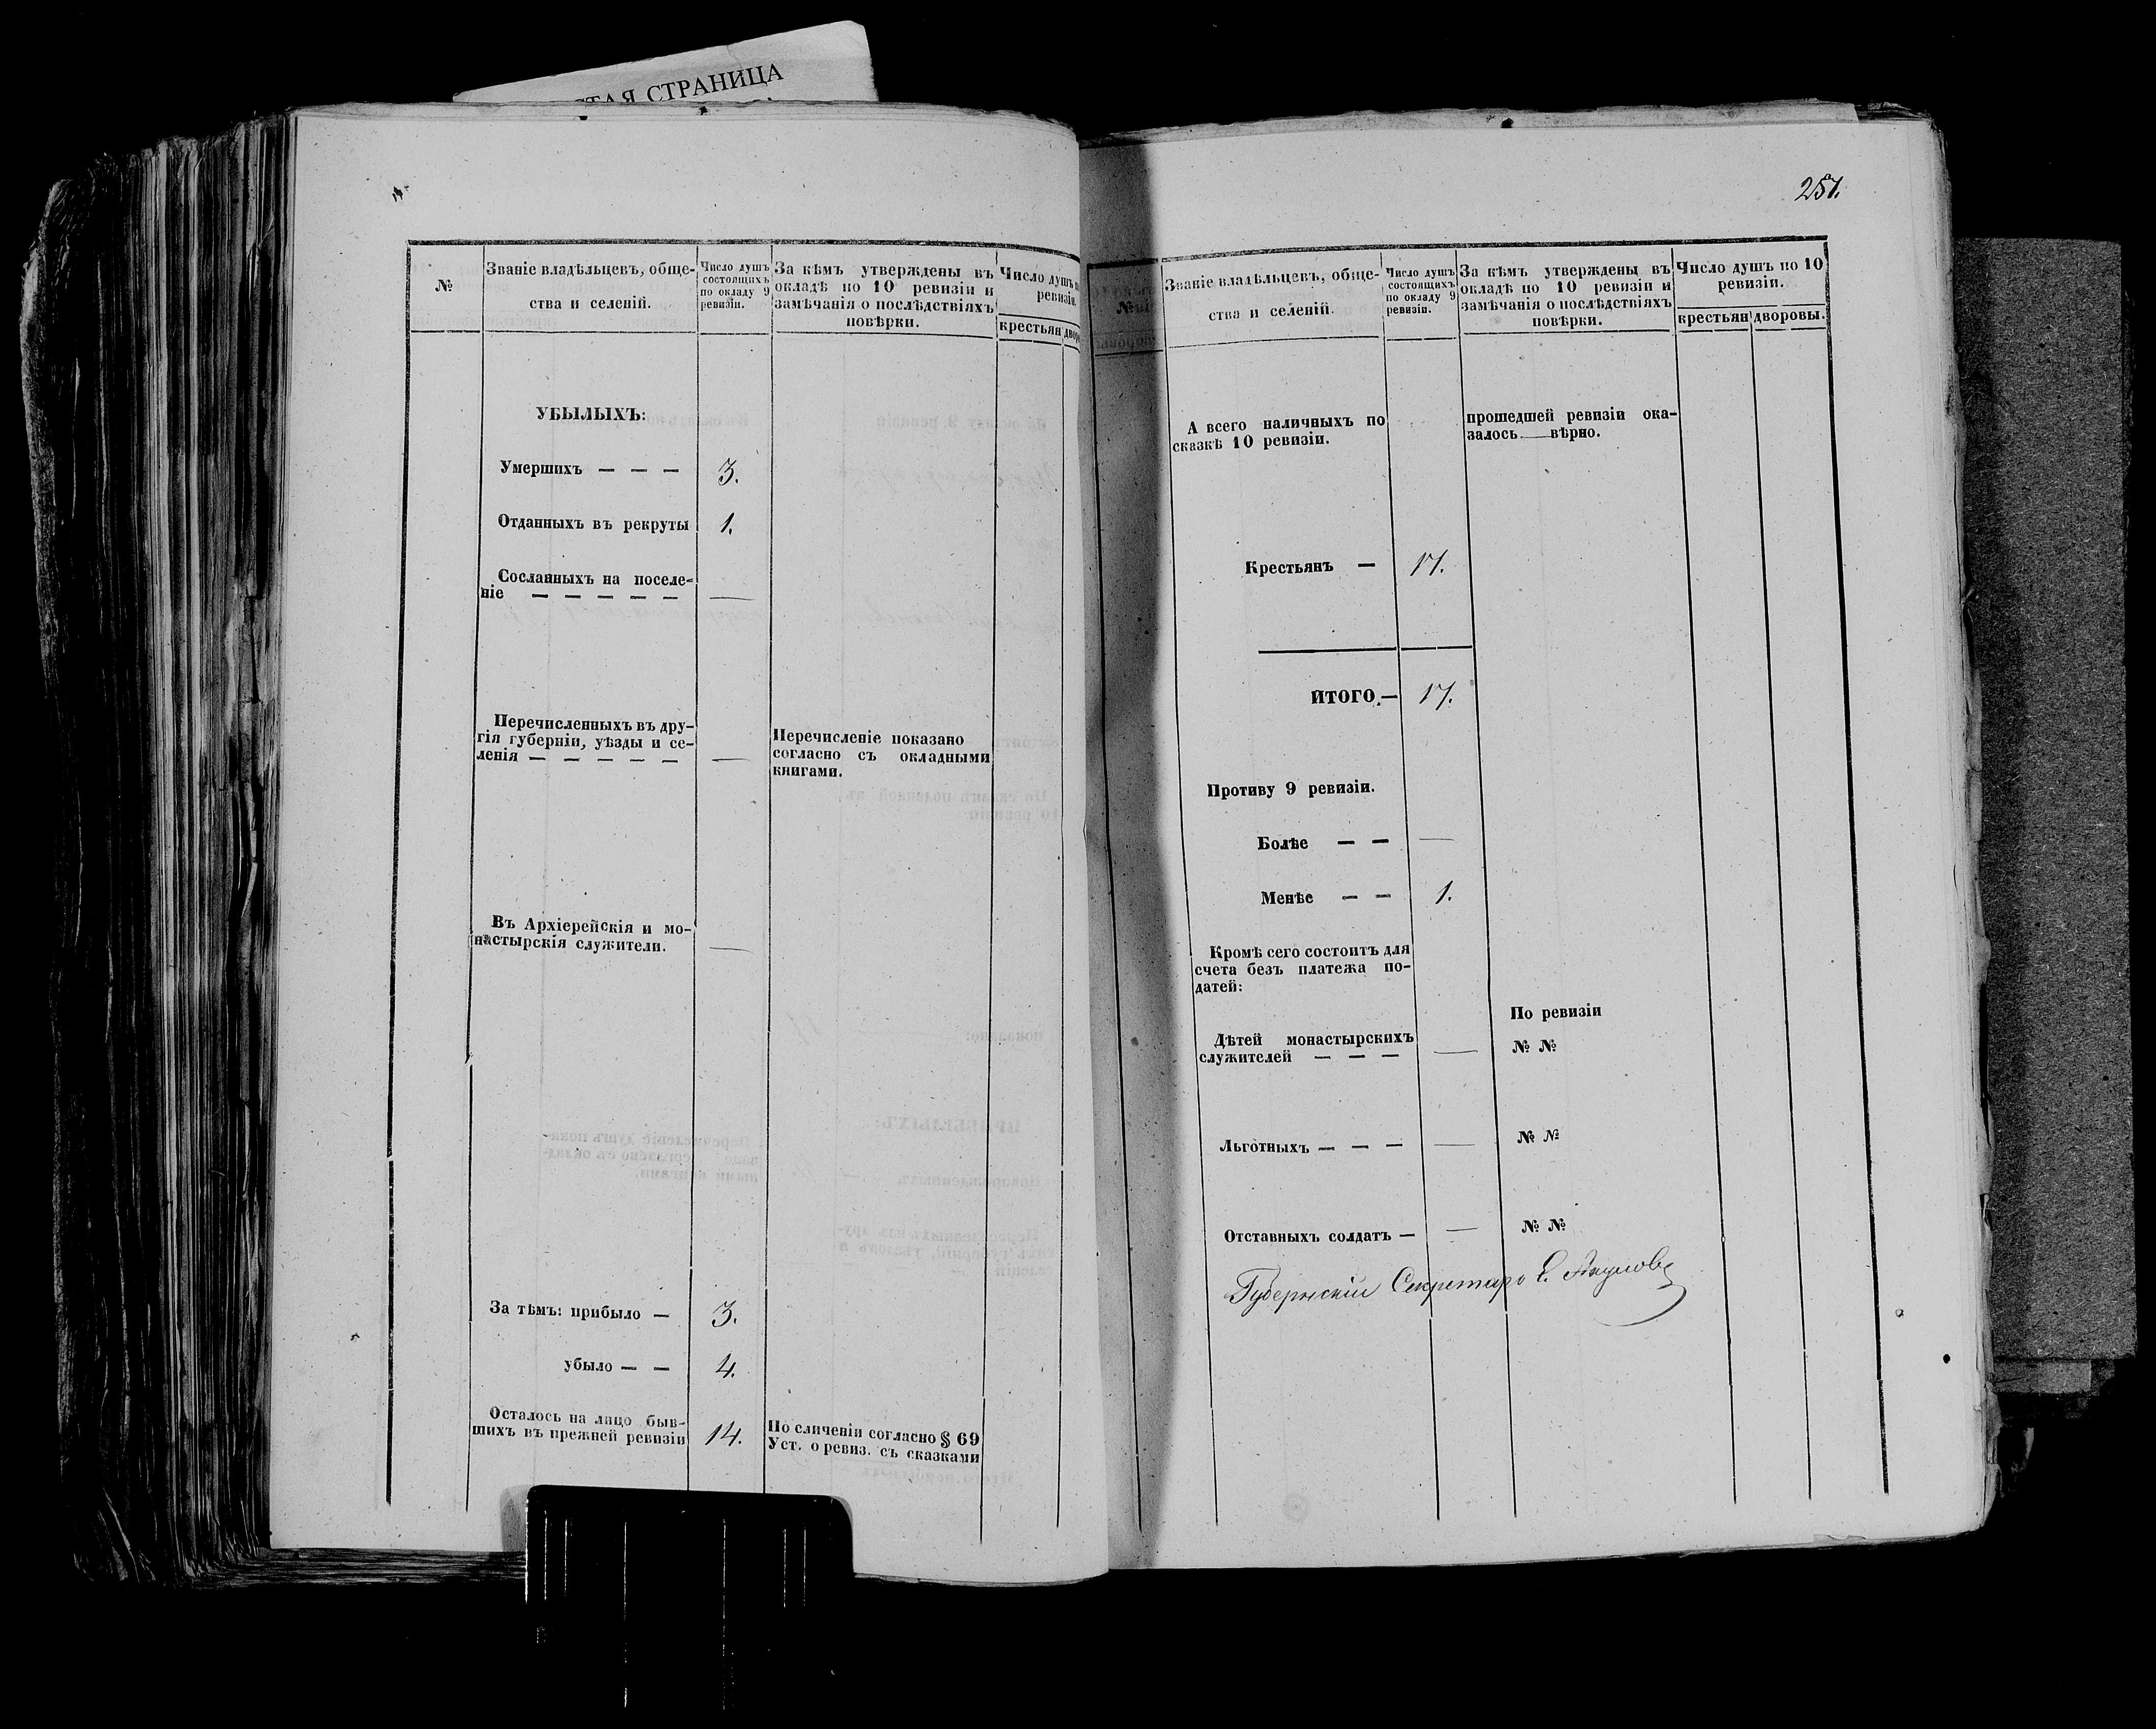 СТРАНИЦА
№
Званіе владѣльцевъ, обще-
ства и селеній.
Число душъ
состоящихъ
по окладу 9
ревизіи.
За кѣмъ утверждены въ
окладѣ по 10 ревизіи и
замѣчанія о послѣдствіяхъ
повѣрки.
Число душъ
ревизіи.
крестьян
УБЫЛЫХЪ:
Умершихъ — — — 3.
Отданныхъ въ рекруты 1.
Сосланныхъ на поселе-
ніе — — — — — —
Перечисленныхъ въ дру-
гія губерніи, уѣзды и се-
ленія — — — — — —
Перечисленіе показано
согласно съ окладными
книгами.
Въ Архіерейскія и мо-
настырскія служители. —
За тѣмъ: прибыло — 3.
убыло — — 4.
Осталось на лицо быв-
шихъ въ прежней ревизіи 14.
По сличеніи согласно § 69
Уст. о ревиз. съ сказками
251.
№
Званіе владѣльцевъ, обще-
ства и селеній.
Число душъ
состоящихъ
по окладу 9
ревизіи.
За кѣмъ утверждены въ
окладѣ по 10 ревизіи и
замѣчанія о послѣдствіяхъ
повѣрки.
Число душъ по 10
ревизіи.
крестьян дворовы.
А всего наличныхъ по
сказкѣ 10 ревизіи.
прошедшей ревизіи ока-
залось — вѣрно.
Крестьянъ — 17.
ИТОГО.— 17.
Противу 9 ревизіи.
Болѣе — — —
Менѣе — — 1.
Кромѣ сего состоитъ для
счета безъ платежа по-
датей:
По ревизіи
Дѣтей монастырскихъ
служителей — — — — № №
Льготныхъ — — — — № №
Отставныхъ солдатъ — — № №
Губернскій Секретарь